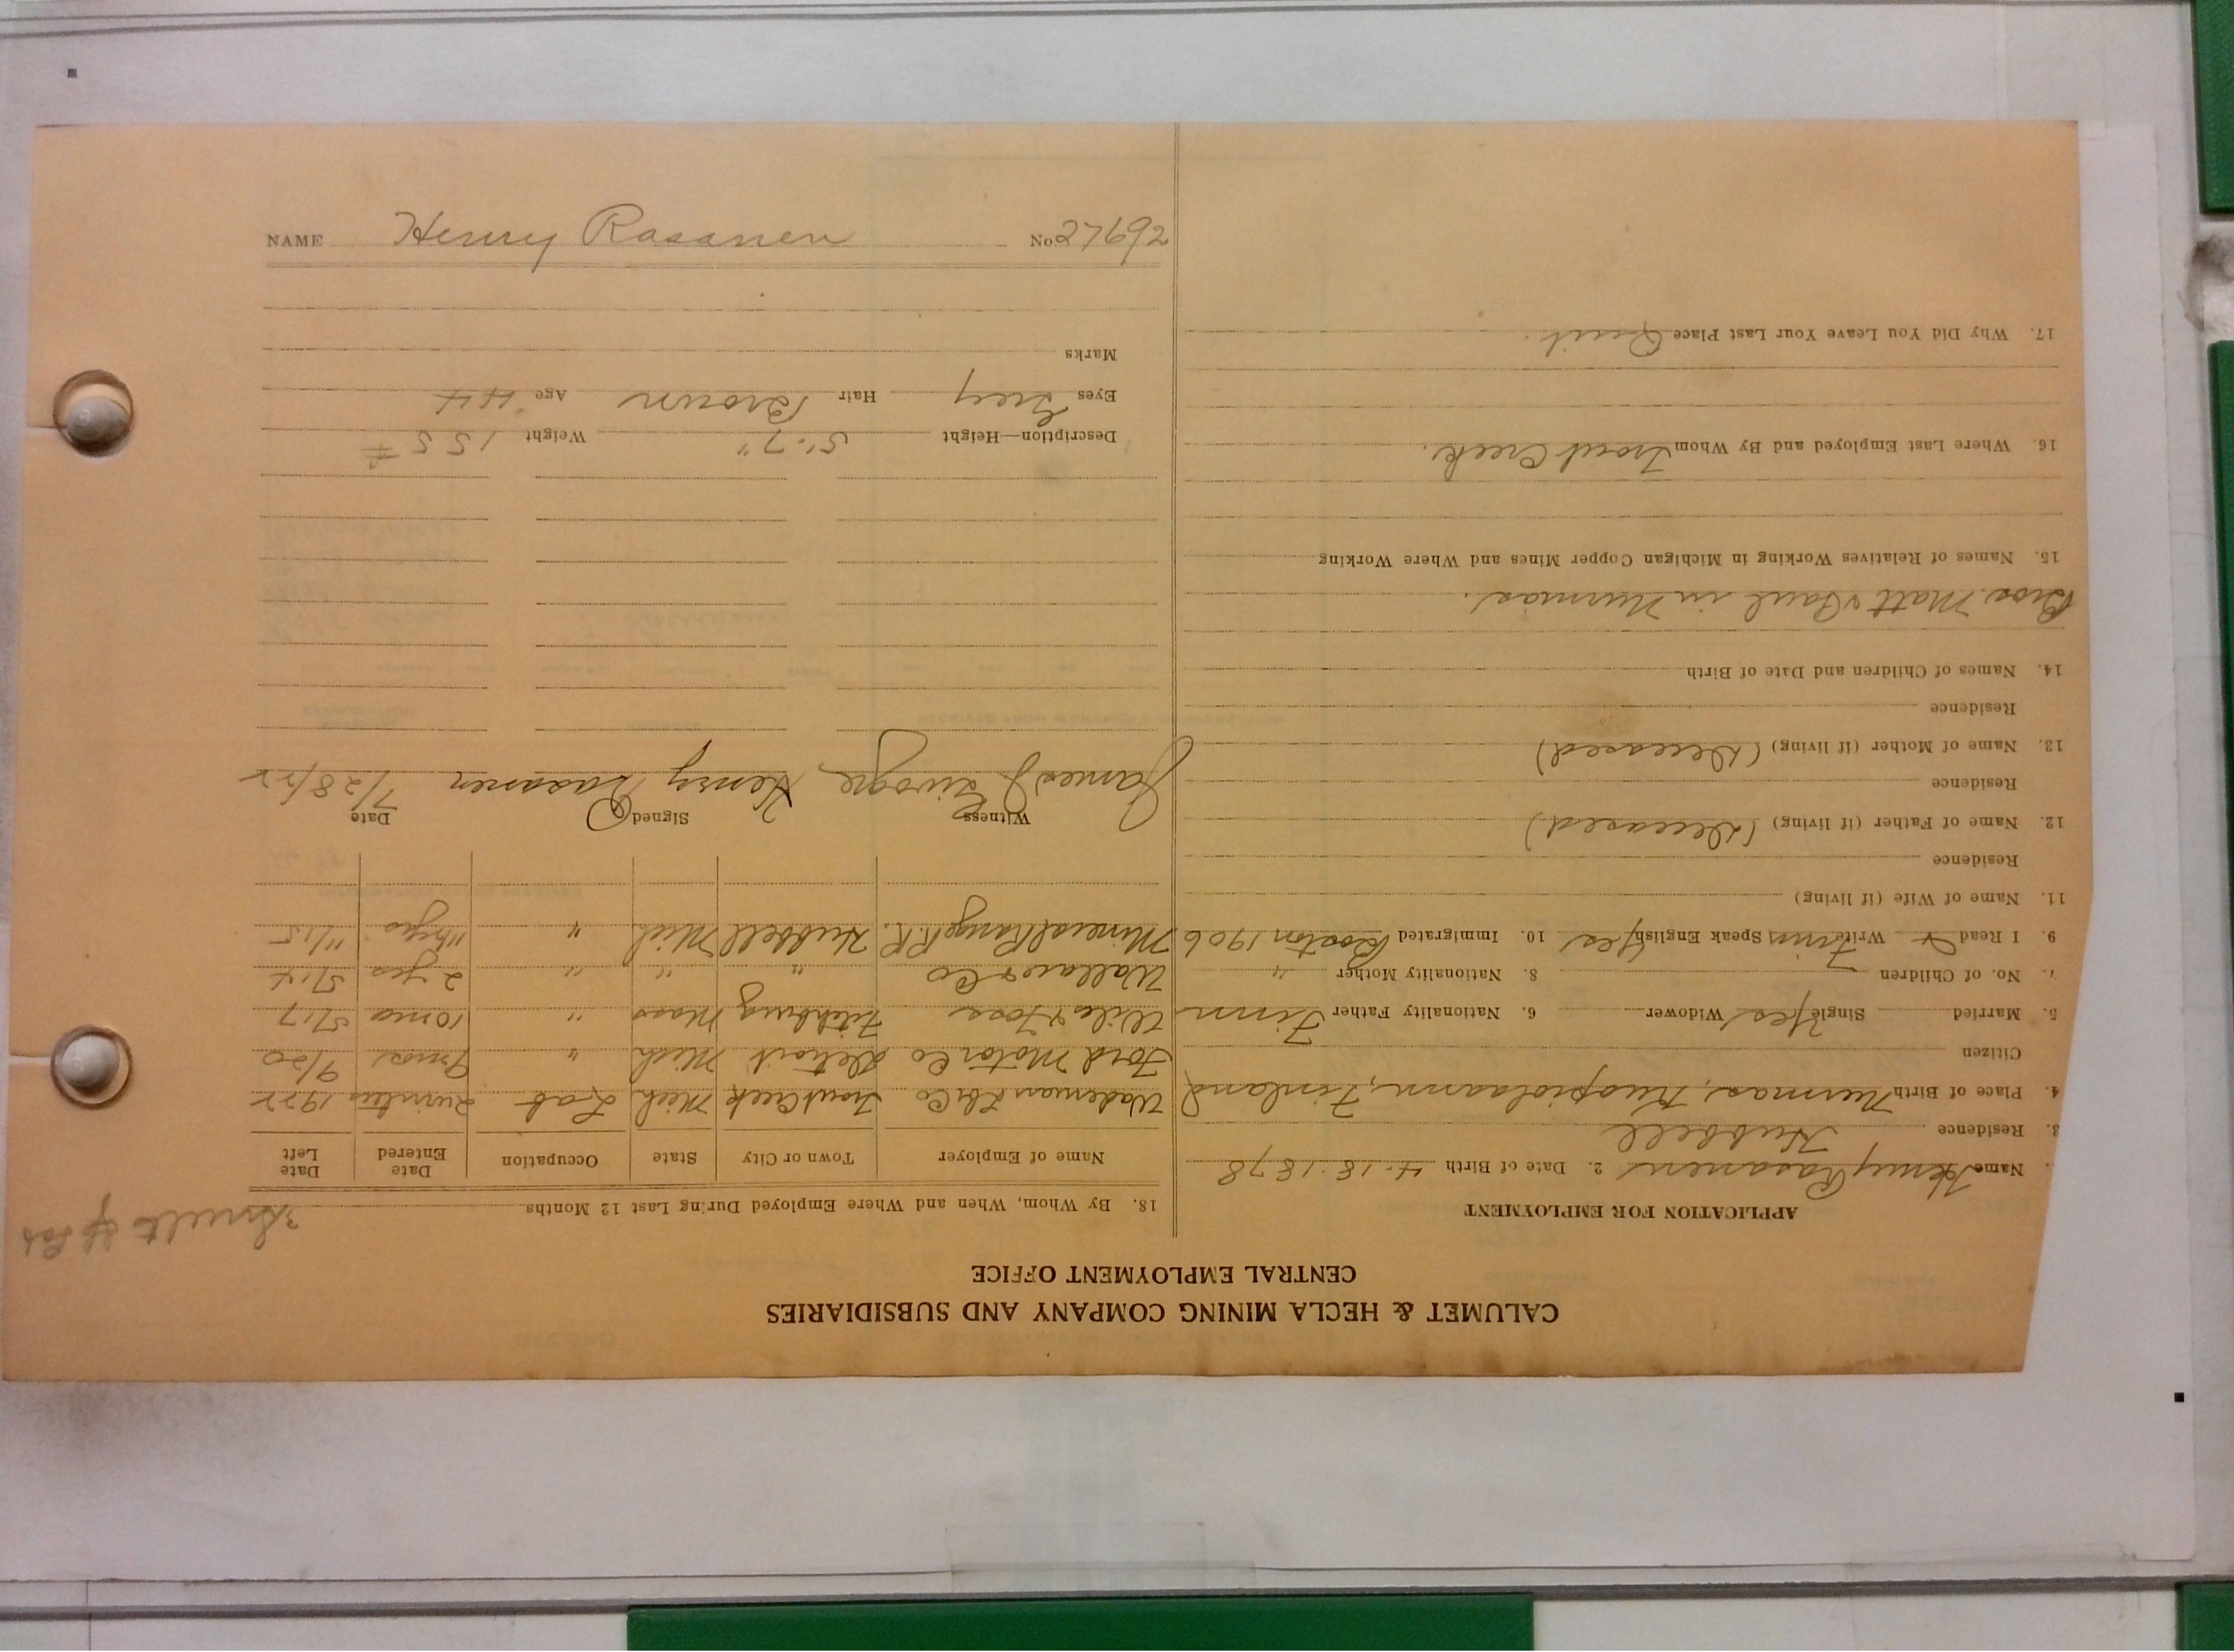 CALUMET & HECLA MINING COMPANY AND SUBSIDIARIES
CENTRAL EMPLOYMENT OFFICE
APPLICATION FOR EMPLOYMENT
Name Henry Rasanen 2. Date of Birth 4-18-1878
3. Residence Hubbell
4. Place of Birth Nurmas, Kuopiolaann, Finland
Citizen
5. Married Single Yes Widower 6. Nationality Father Finn
7. No. of Children 8. Nationality Mother "
9. I Read & Write Finn Speak English Yes 10. Immigrated Boston 1906
11. Name of Wife (if living)
Residence
12. Name of Father (if living) (Deceased)
Residence
13. Name of Mother (if living) (Deceased)
Residence
14. Names of Children and Date of Birth
Bros. Matt & Paul in Nurmas.
15. Names of Relatives Working in Michigan Copper Mines and Where Working
16. Where Last Employed and By Whom Trout Creek.
17. Why Did You Leave Your Last Place Quit.
Smelt
18. By Whom, When and Where Employed During Last 12 Months
Name of Employer Town or City State Occupation Date Entered Date Left
Co Trout Creek Mich Lab 2 winters 1922
Ford Motor Co Detroit Mich " 9 mos 9/20
Fitchburg Mass " 10 mos 5/17
Wallace & Co " " " 2 yrs 5/14
Mineral Range R.R. Hubbell Mich " yrs 11/15
Witness Signed Date
James J. Henry Rasanen 7/28/22
Description—Height 5'-7" Weight 155 #
Eyes Grey Hair Brown Age 44
Marks
NAME Henry Rasanen No. 27692